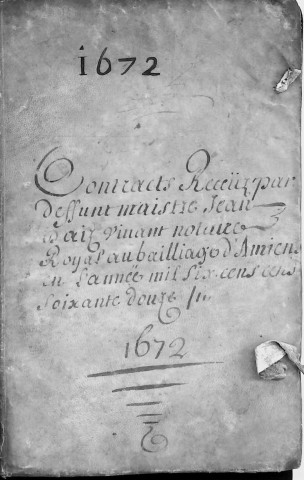 1672
Contracts Receüz par
deffunt maistre Jean
vivant notaire
Royal au bailliage d'Amiens
en l'année mil six cens cens
soixante douze
1672